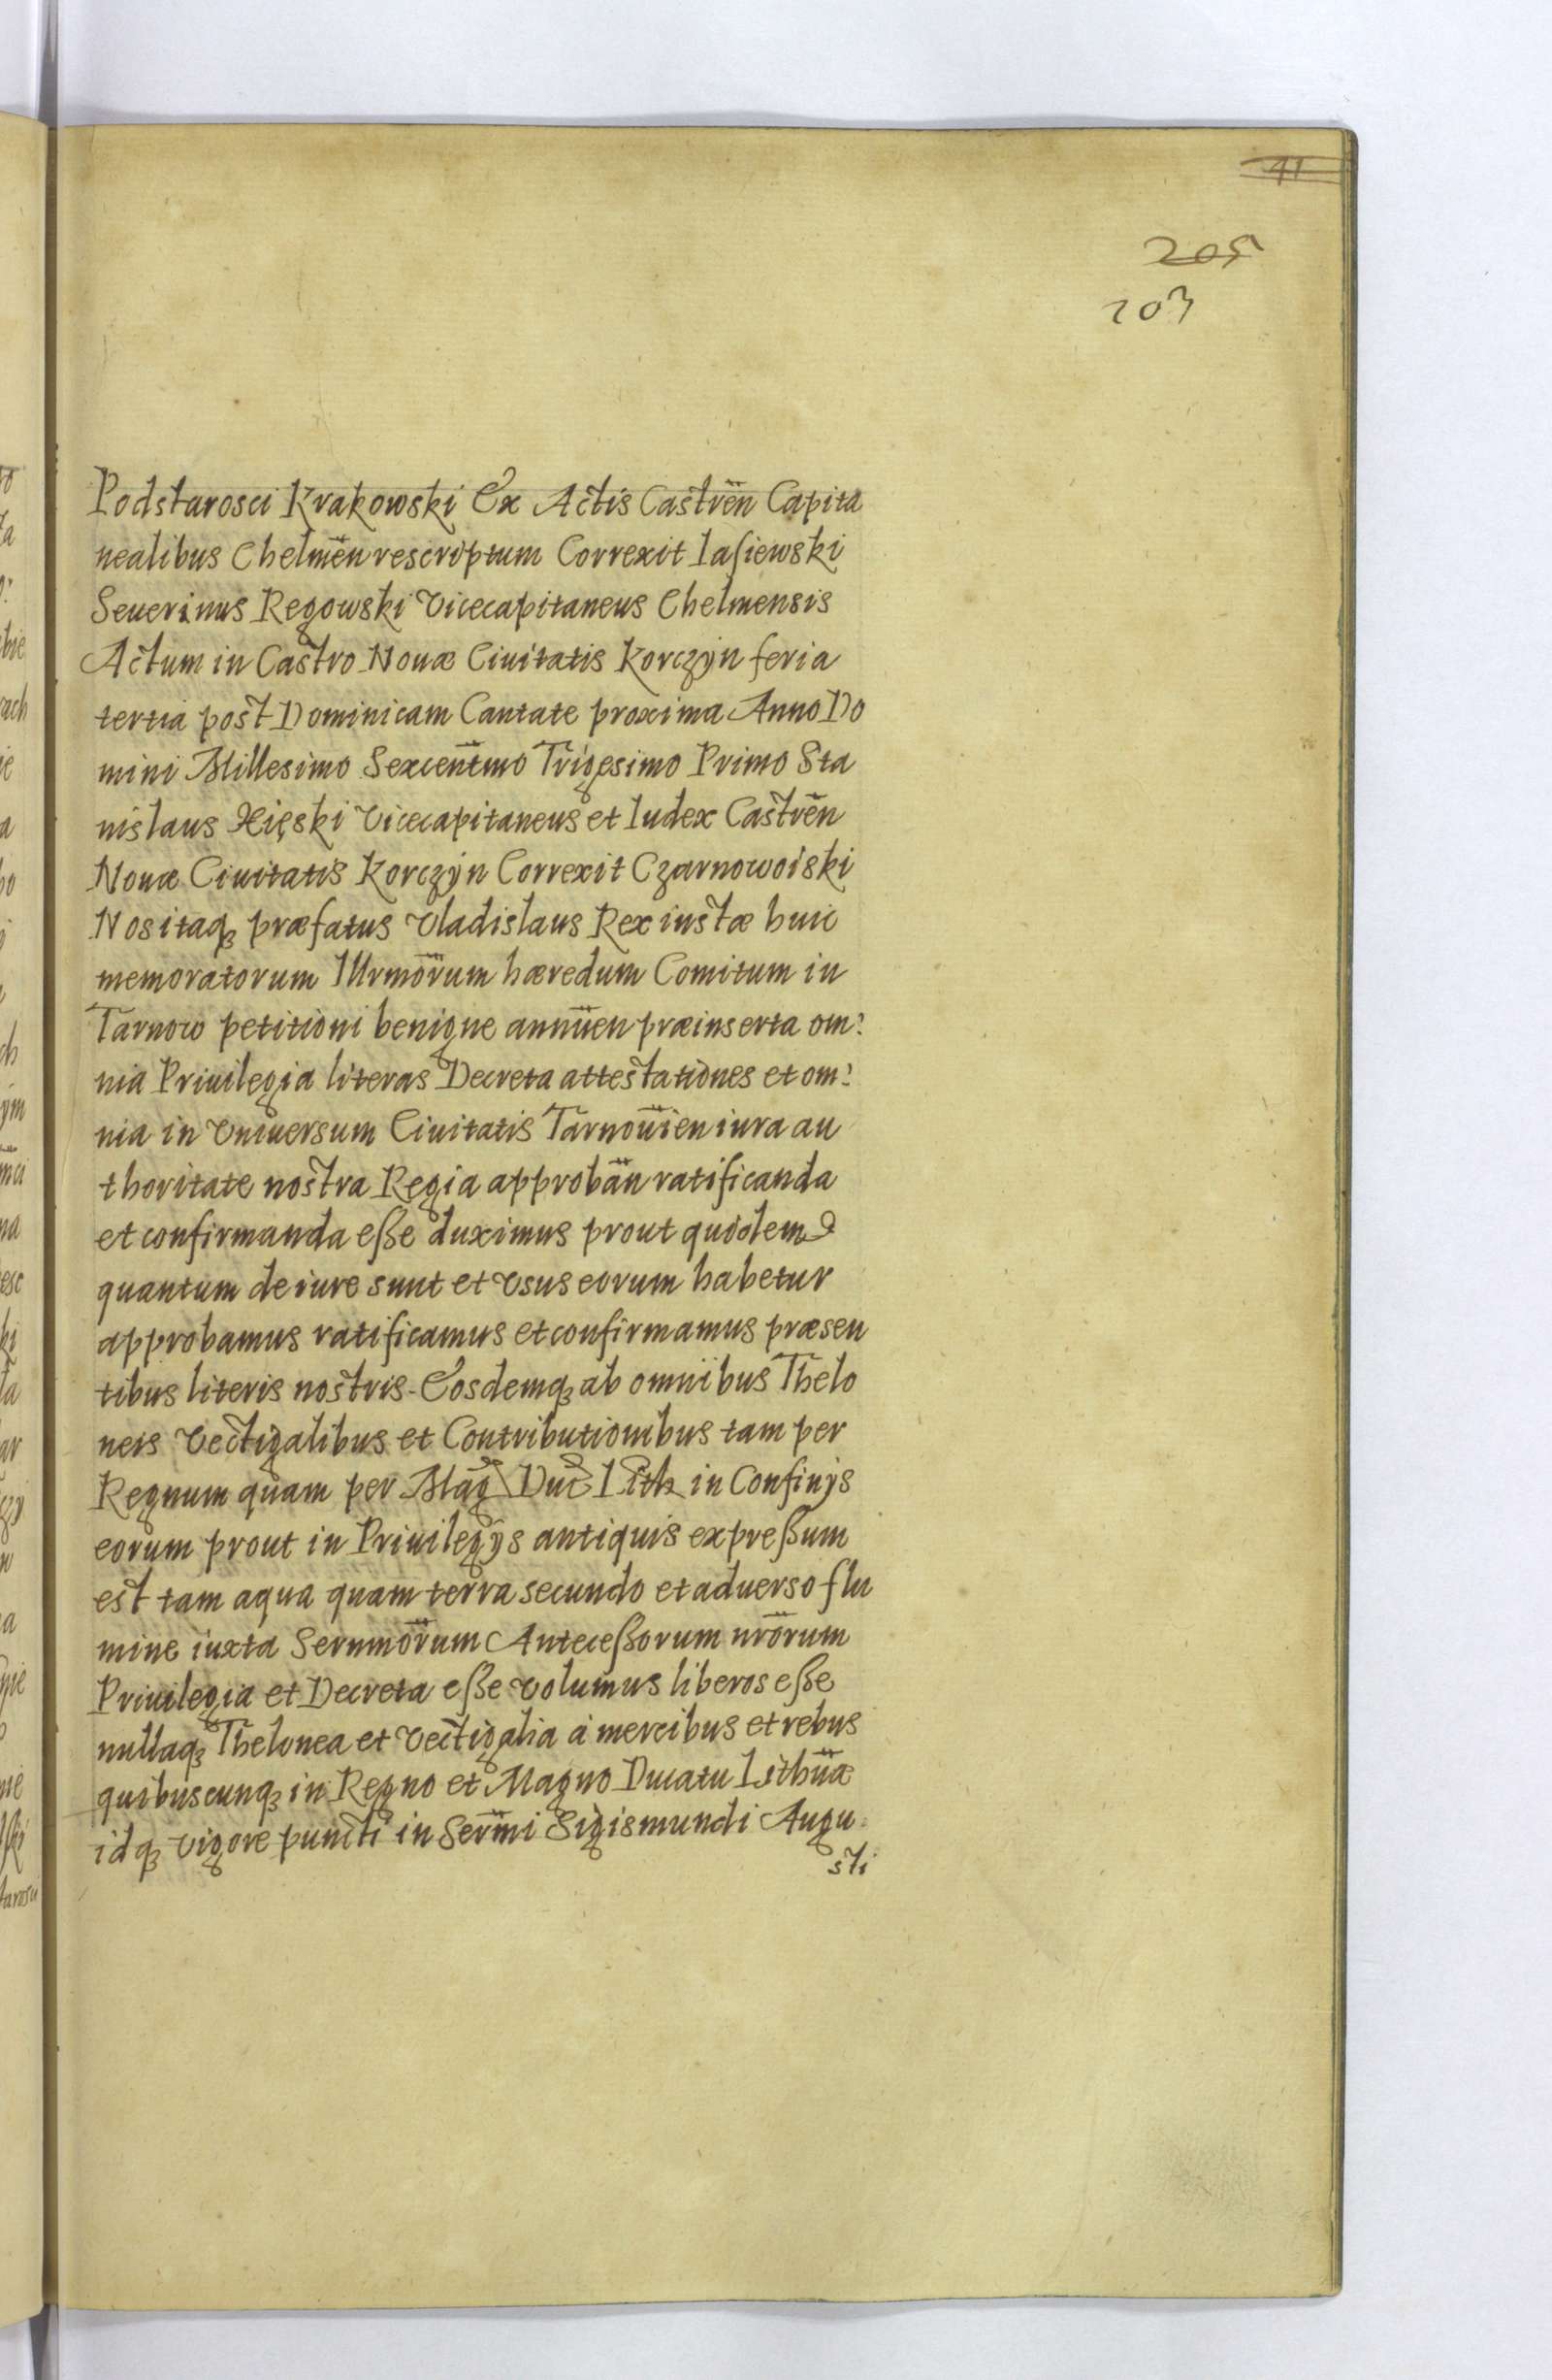 41
205
203
Podstarosci Krakowski Ex Actis Castren̄ Capita
nealibus Chelmen̄ rescriptum Correxit Iasiewski
Seuerinus Regowski Vicecapitaneus Chelmensis
Actum in Castro Nouæ Ciuitatis Korczÿn feria
tertia post Dominicam Cantate proxima Anno Do
mini Millesimo Sexcentmo Trigesimo Primo Sta
nislaus Xięski Vicecapitaneus et Iudex Castren̄
Nouæ Ciuitatis Korczÿn Correxit Czarnowoiski
Nos itaqꝫ præfatus Vladislaus Rex iustæ huic
memoratorum Illrmōrum hæredum Comitum in
Tarnow petitioni benigne annuen̄ præinserta om:
nia Priuilegia literas Decreta attestationes et om:
nia in Vniuersum Ciuitatis Tarnouien̄ iura au
thoritate nostra Regia approban̄ ratificanda
et confirmanda eße duximus prout quidem
quantum de iure sunt et Vsus eorum habetur
approbamus ratificamus et confirmamus præsen
tibus literis nostris. Eosdemqꝫ ab omnibus Thelo
neis Vectigalibus et Contributionibus tam per
Regnum quam per Mag Duc Lith in Confinÿs
eorum prout in Priuilegÿs antiquis expreßum
est tam aqua quam terra secundo et aduerso flu
mine iuxta Sernmōrum Anteceßorum nrōrum
Priuilegia et Decreta eße Volumus liberos eße
nullaqꝫ Thelonea et Vectigalia á mercibus et rebus
quibuscunqꝫ in Regno et Magno Ducatu Lithūæ
idqꝫ vigore puncti in Serm̄i Sigismundi Augu
sti